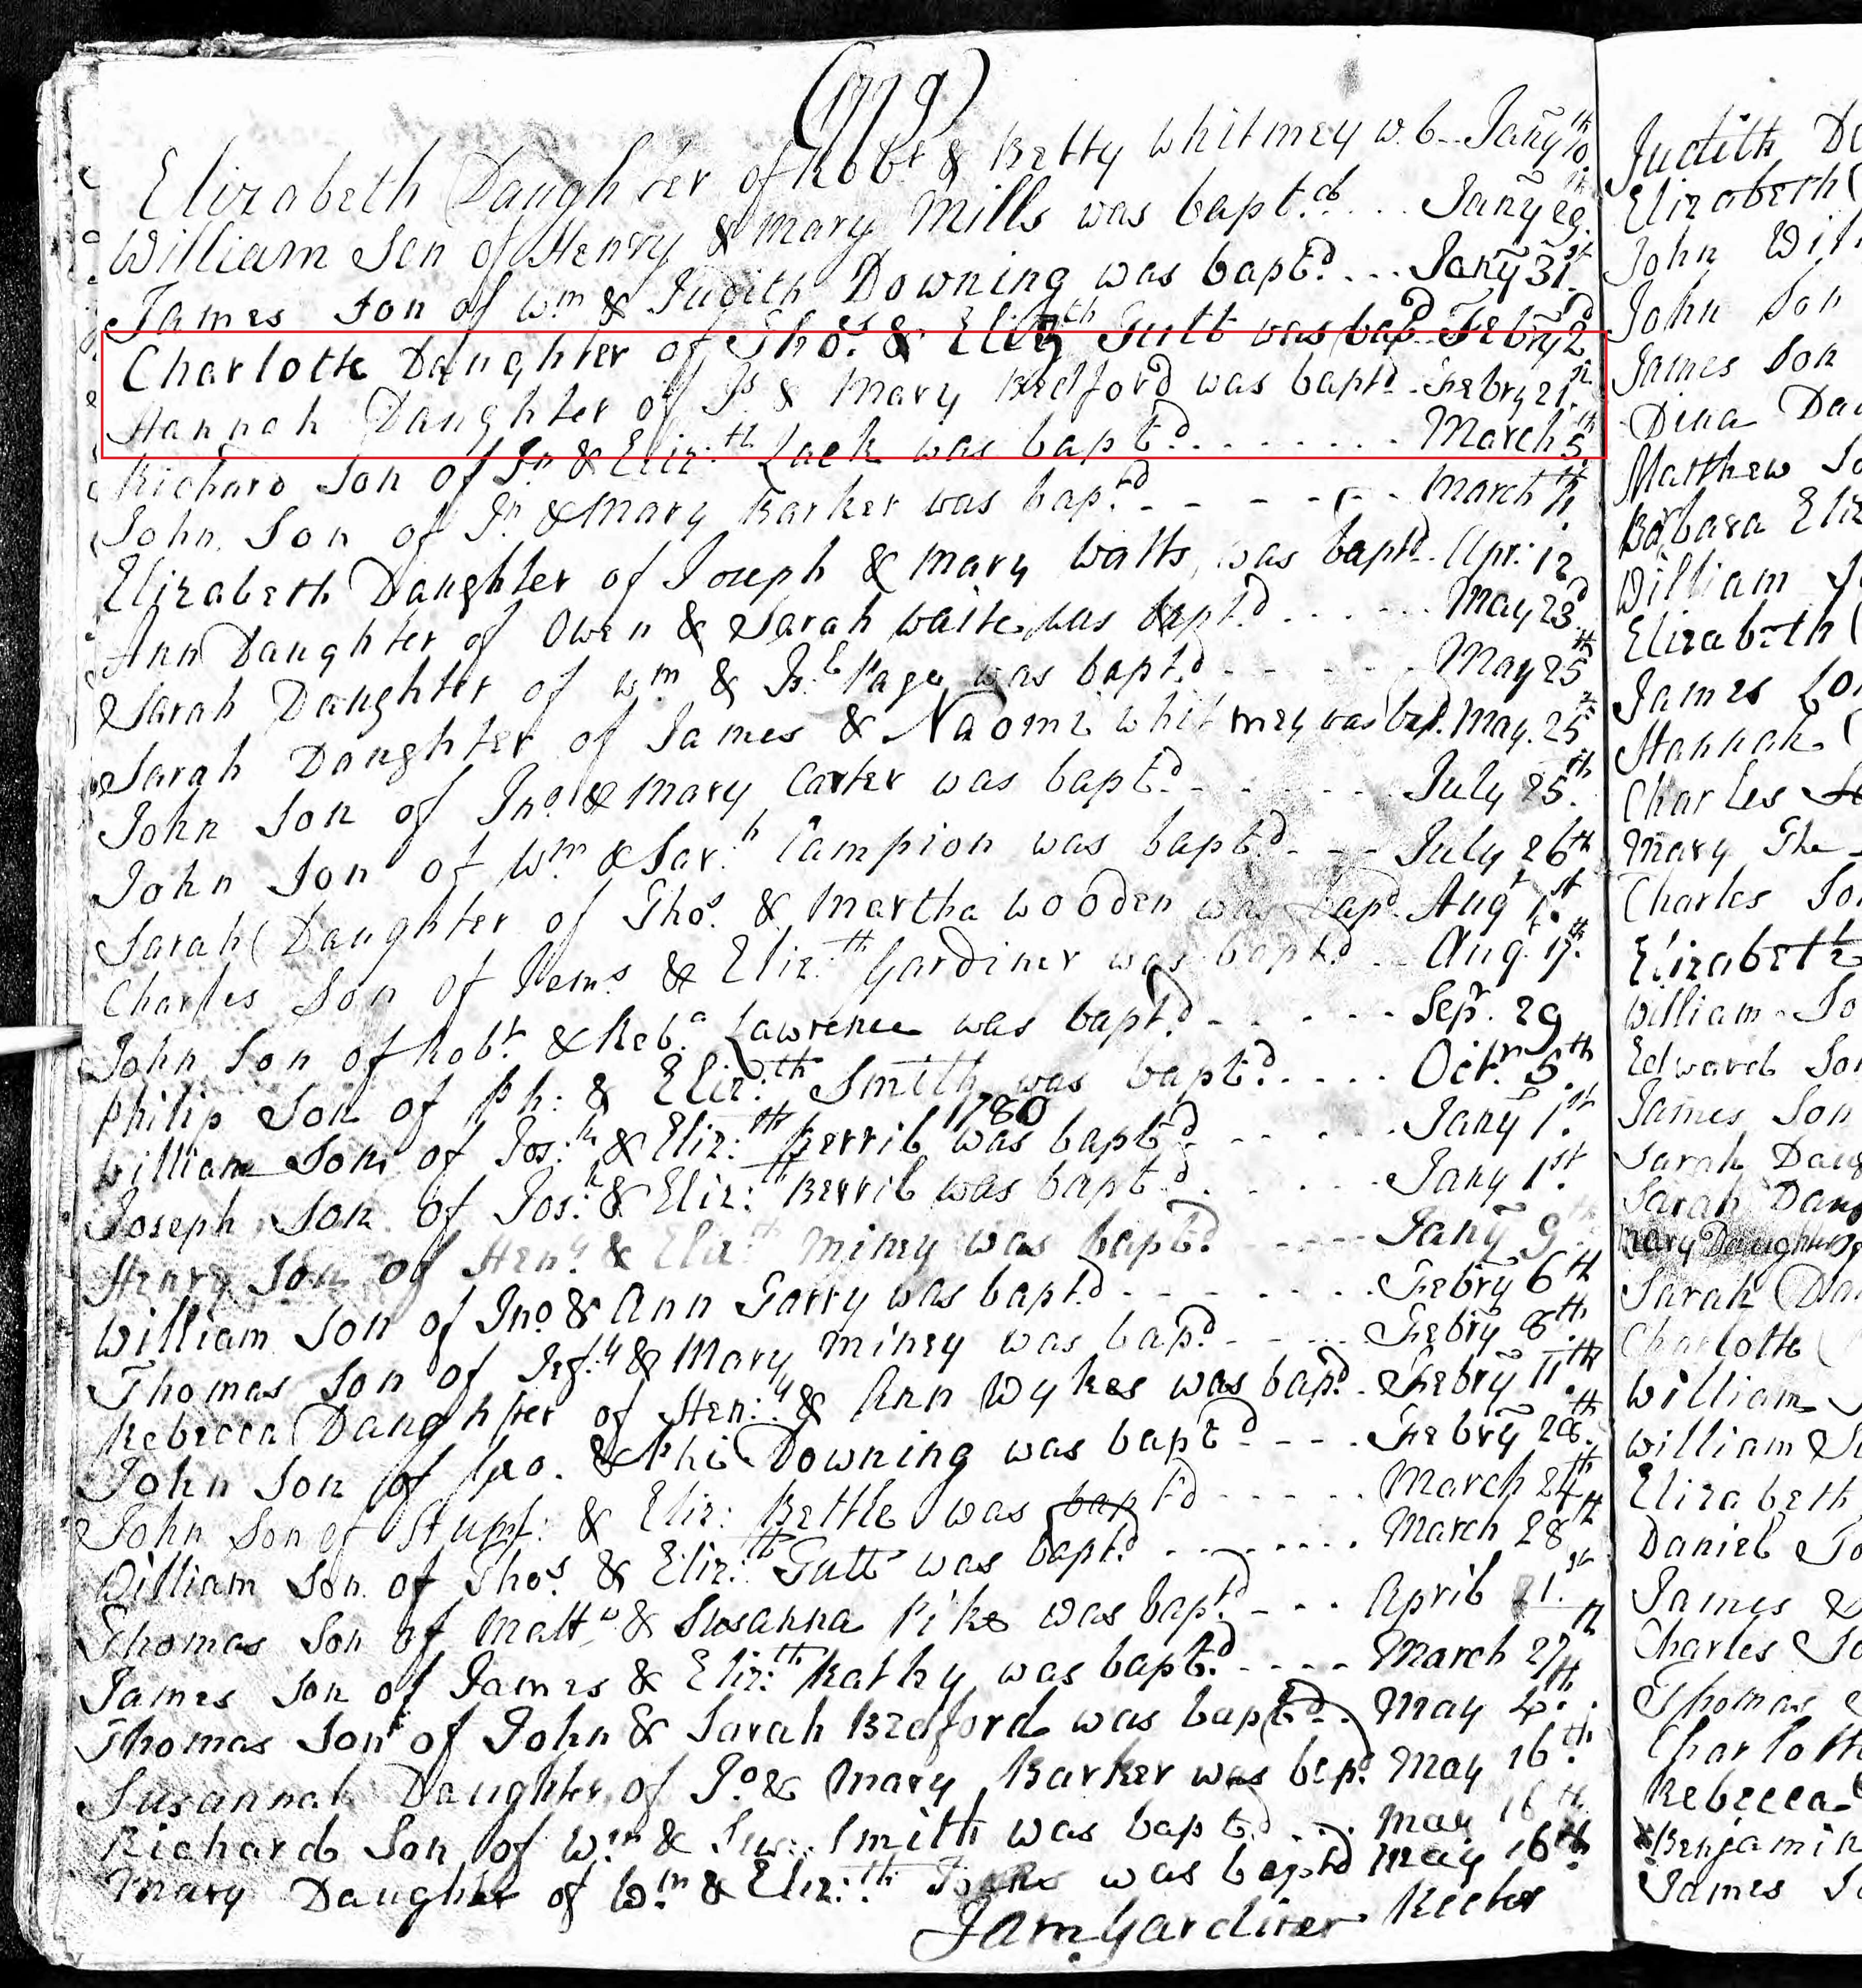 (1779)
Elizabeth Daughter of Robt & Betty Whitmey w. b-- Jany 10th
William Son of Henry & Mary Mills was bapt.d ... Jany 29.th
James Son of Wm & Judith Downing was bapt.d ... Jany 31.st
Charlotte Daughter of Thos. & Eliz.th Gutt was bap.d Febry 2d
Hannah Daughter of Js & Mary Bedford was bapt.d Febry 21.
Richard Son of Jn & Eliz:th Lack was bapt.d ....... March 5th
John Son of Jn & Mary Barker was bap.td - - - - - March
Elizabeth Daughter of Joseph & Mary Watts, was bapt.d Apr: 12
Ann Daughter of Owen & Sarah Waite was bapt.d ..... May 23d
Sarah Daughter of Wm & Page was bapt.d - - - - May 25th
Sarah Daughter of James & Naomi Whitmey was bap.d May. 25th
John Son of Jno. & Mary Carter was bapt.d - - - - July 25.th
John Son of Wm & Sar:h Campion was bapt.d - - - July 26th
Sarah Daughter of Thos. & Martha Wooden was bap.d Augt 1.st
Charles Son of & Eliz.th Gardiner was bapt.d - Aug.t 17.th
John Son of Robt. & Reb.a Lawrence was bapt.d - - - - - Sepr. 29
Philip Son of Ph: & Eliz:th Smith was bapt.d .... Octr. 5th
1780
William Son of Jos:h & Eliz:th Berril was bapt.d - - - - - Jany 1.st
Joseph Son of Jos:h & Eliz:th Berril was bapt.d - - - - - Jany 1.st
Henry Son of Hen:y & Eliz:th Miney was bapt.d - - - - Jany 9th
William Son of Jno. & Ann Garry was bapt.d - - - - - - Febry 6th
Thomas Son of Jef:y & Mary Miney was bap.d - - - - Febry 8.th
Rebecca Daughter of Hen:y & Ann Wykes was bap.d - Febry 11th
John Son of Geo. & Phi Downing was bapt.d - - - Febry 28.th
John Son of & Eliz: Bettle was bapt'd - - - - - March 24th
William Son of Thos. & Eliz:th Gutt was bapt.d ....... March 28th
Thomas Son of Matt.w & Susanna Pike was bapt.d - - - April 21.st
James Son of James & Eliz:th Kathy was bapt.d - - - - March 27th
Thomas Son of John & Sarah Bedford was bapt.d .. May 4th.
Susannah Daughter of Jo & Mary Barker was bap.d May 16th.
Richard Son of Wm & Sus: Smith was bapt.d ... May 16th
Mary Daughter of Wm & Eliz:th was bapt'd May 16th.
Jam. Gardiner Rector
Judith Da
Elizabeth
John Wil
John Son
James Son
Dina Dau
Matthew So
Barbara Eliz
William
Elizabeth
James Son
Hannah
Charles
Mary The
Charles Son
Elizabeth
William So
Edward Son
James Son
Sarah Daug
Sarah Daug
Mary Daughter
Sarah Da
Charlotte
William
William
Elizabeth
Daniel So
James
Charles So
Thomas
Charlotte
Rebecca
Benjamin
James